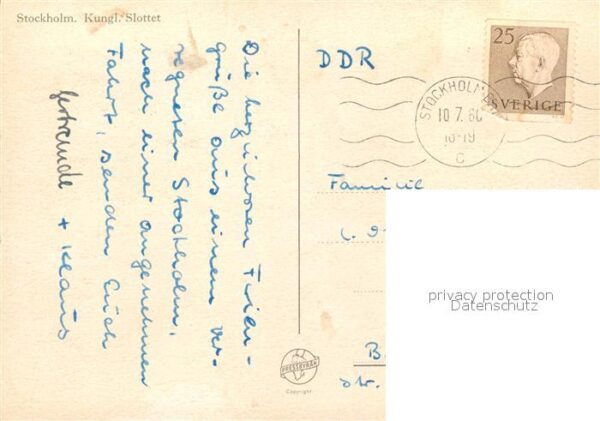 Stockholm. Kungl. Slottet
Die herzlichsten Ferien-
grüße aus einem ver-
regneten Stockholm,
nach einer angenehmen
Fahrt, senden Euch
Gertraude + Klaus
DDR
25
SVERIGE
STOCKHOLM
10 7. 60
18-19
C
Familie
B
str.
PRESSBYRÅN
Copyright
privacy protection
Datenschutz